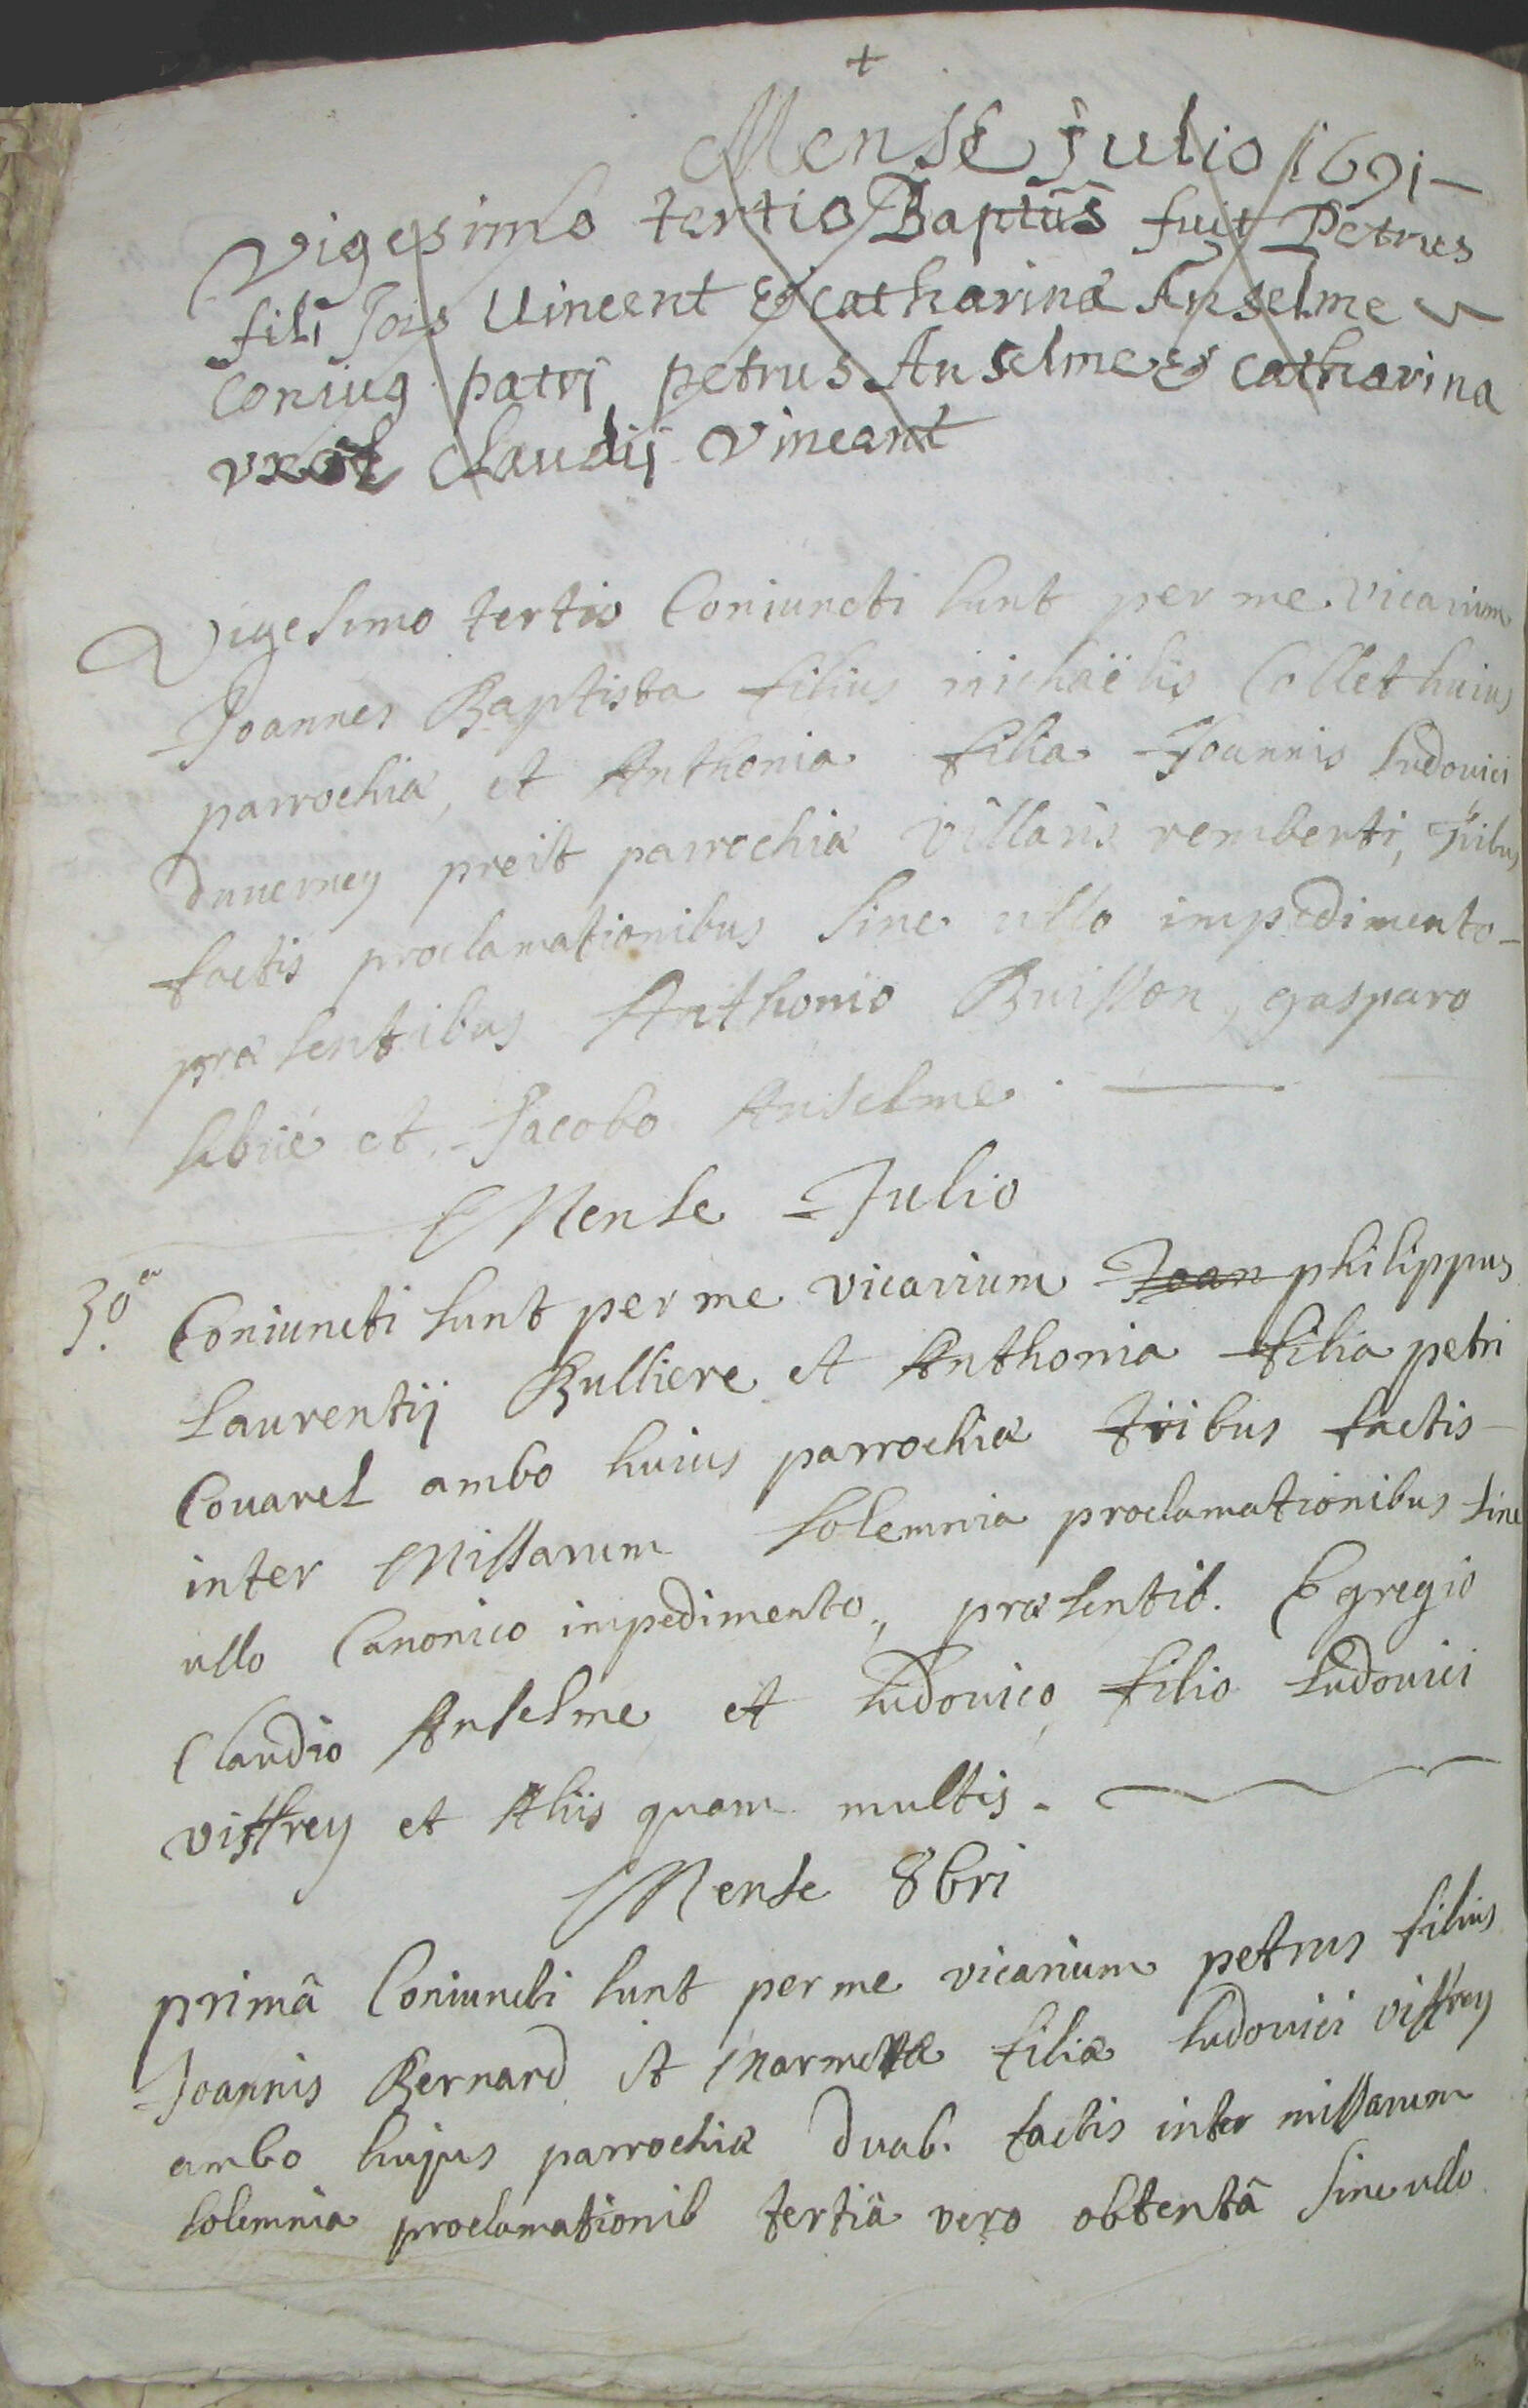 +
Mense julio 1691 –
Vigesimo tertio Baptũs fuit Petrus
fili Jois Vincent & catharinæ Anselme
coniug patrj petrus Anselme & catharina
vxor Claudij Vincent
Vigesimo tertio Coniuncti sunt per me vicarium
Joannes Baptista filius michaëlis Collet huius
parrochiæ, et Anthonia filia Joannis Ludovici
duverney preit parrochiæ villaris remberti, tribus
factis proclamationibus sine ullo impedimento –
præsentibus Anthonio Buisson, gasparo
sibüe et Jacobo Anselme. —
Mense Julio
30.a Coniuncti sunt per me vicarium Joan philippus
Laurentij Bulliere et Anthonia filia petri
Covarel ambo huius parrochiæ tribus factis –
inter Missarum solemnia proclamationibus sine
ullo Canonico impedimento, præsentib. Egregio
Claudio Anselme et Ludovico filio Ludovici
viffrey et Aliis quam multis.
Mense 8bri
primâ Coniuncti sunt per me vicarium petrus filius
Joannis Bernard et filiæ Ludovici viffrey
ambo hujus parrochiæ duab. factis inter missarum
solemnia proclamationib tertiâ vero obtentâ sine ullo